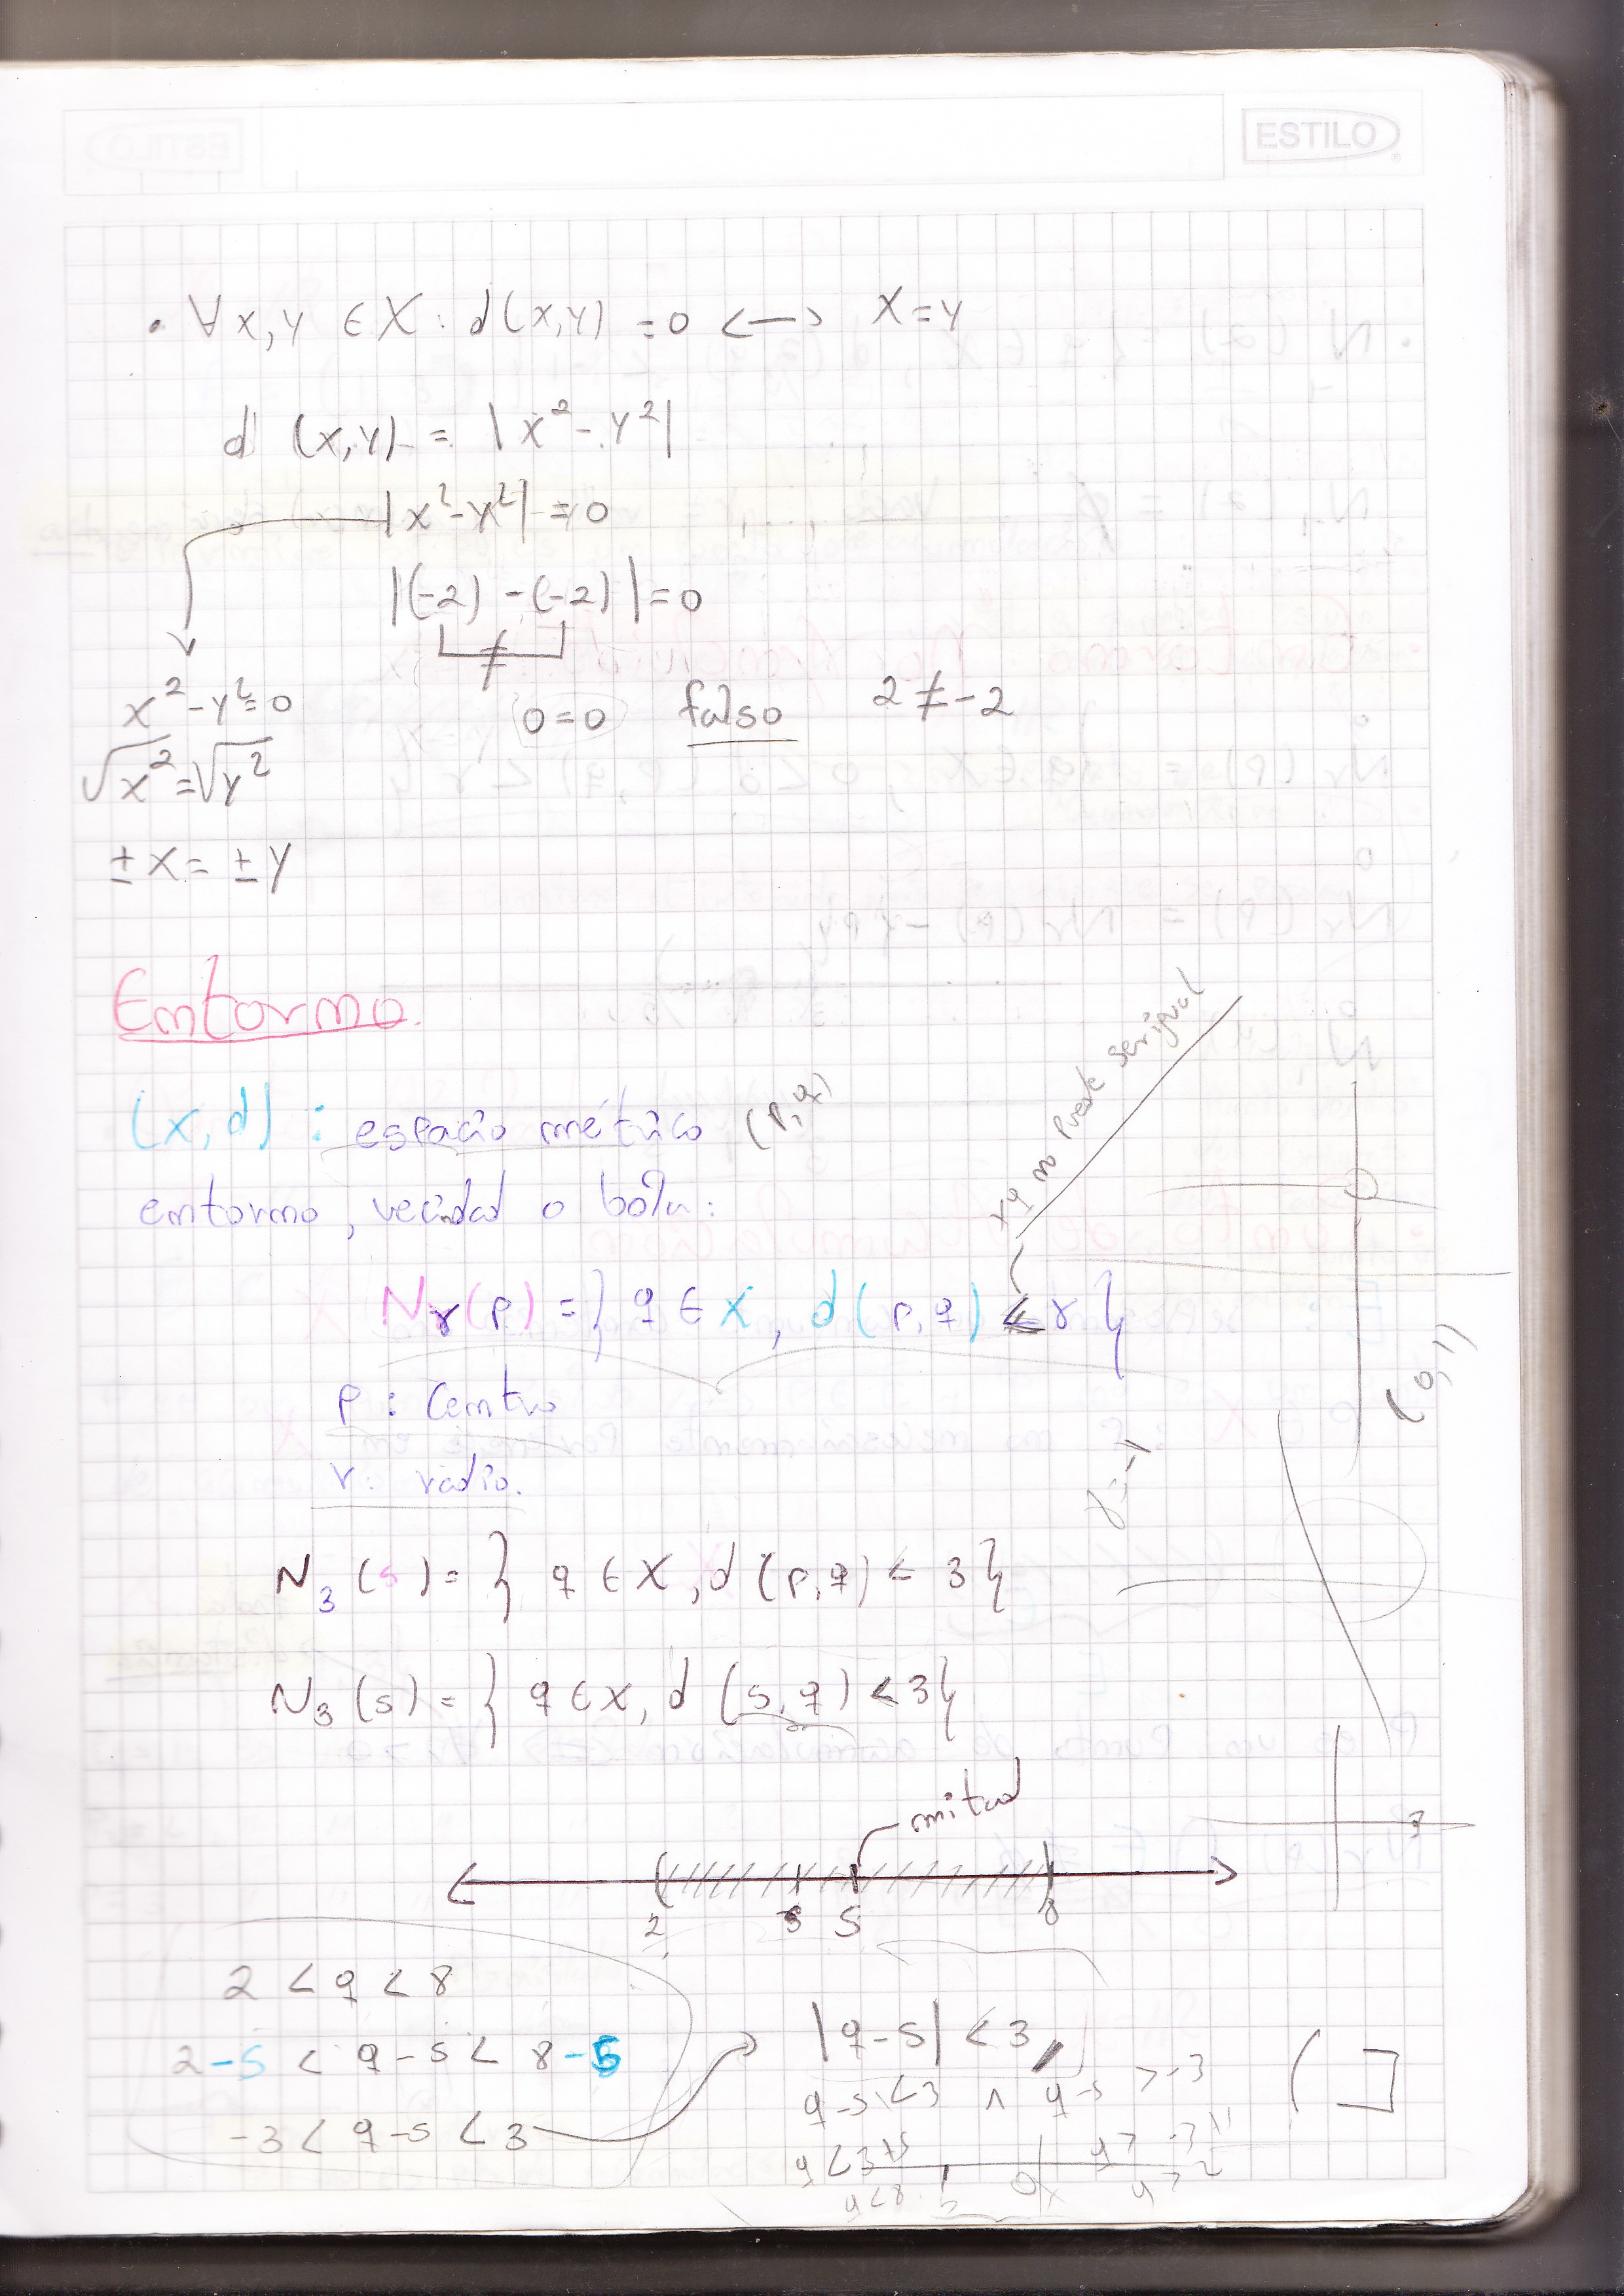 ESTILO
• ∀x,y ∈ X : d(x,y) = 0 <—> x=y
d (x,y) = |x²-y²|
|x²-y²| = 0
|(-2) - (-2)| = 0
≠
x²-y²=0
0=0 falso 2≠-2
√x² = √y²
±x = ±y
Entorno.
(x,d) : espacio métrico (p,q)
entorno, vecindad o bola:
no puede ser igual
Nr(p) = { q ∈ X, d(p,q) < r }
p : Centro
r : radio.
(0,1)
N₃(5) = { q ∈ X, d(p,q) < 3 }
N₃(5) = { q ∈ X, d(5,q) < 3 }
mitad
2 5 8
2 < q < 8
2-5 < q-5 < 8-5
-3 < q-5 < 3
|q-5| < 3
q-5 < 3 ∧ q-5 > -3
q < 3+5
q < 8 q > 2
( ]